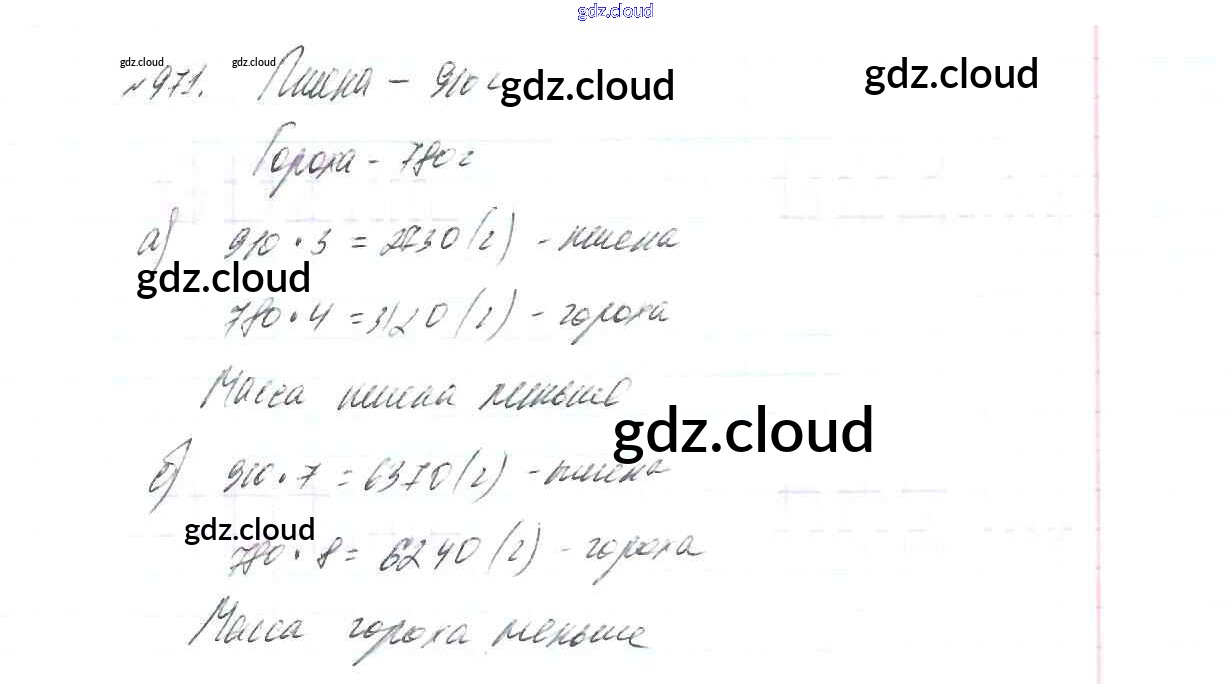 gdz.cloud
gdz.cloud gdz.cloud
№971. Пшена – 910 г gdz.cloud gdz.cloud
Гороха - 780 г
а) 910 · 3 = 2730 (г) - пшена
gdz.cloud
780 · 4 = 3120 (г) - гороха
Масса пшена меньше
gdz.cloud
б) 910 · 7 = 6370 (г) - пшена
gdz.cloud
780 · 8 = 6240 (г) - гороха
Масса гороха меньше